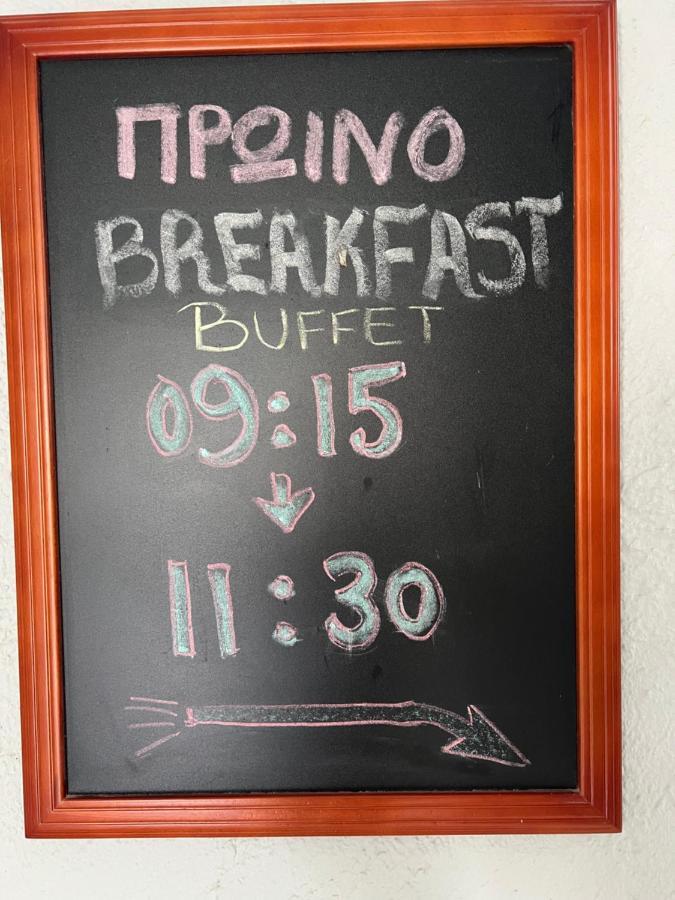 ΠΡΩΙΝΟ
BREAKFAST
BUFFET
09:15
↓
11:30